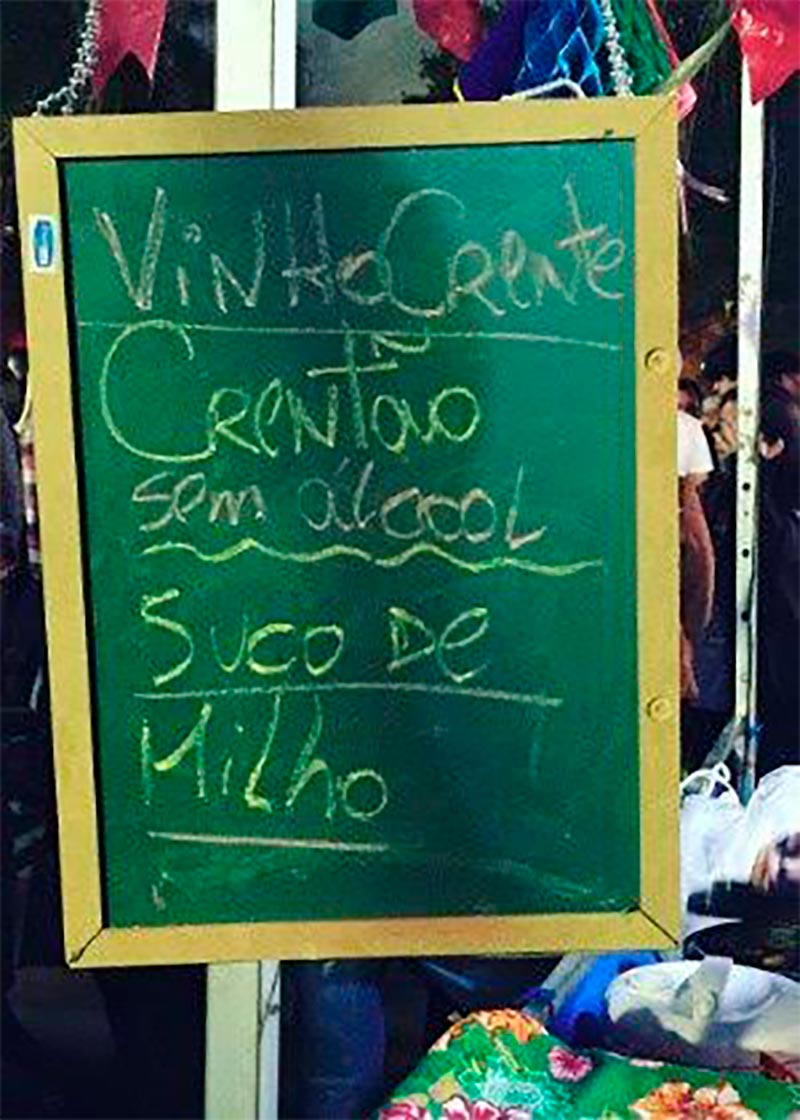 Vinho Crente
Crentão
sem álcool
Suco De
Milho